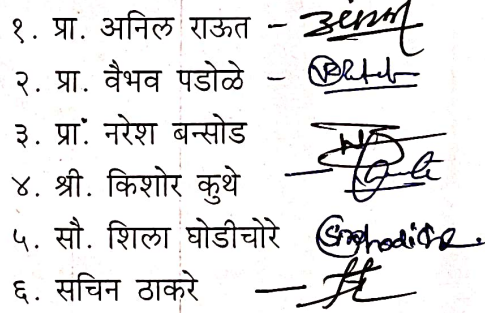 १. प्रा. अनिल राऊत -
२. प्रा. वैभव पडोळे -
३. प्रा. नरेश बन्सोड
४. श्री. किशोर कुथे -
५. सौ. शिला घोडीचोरे
६. सचिन ठाकरे -